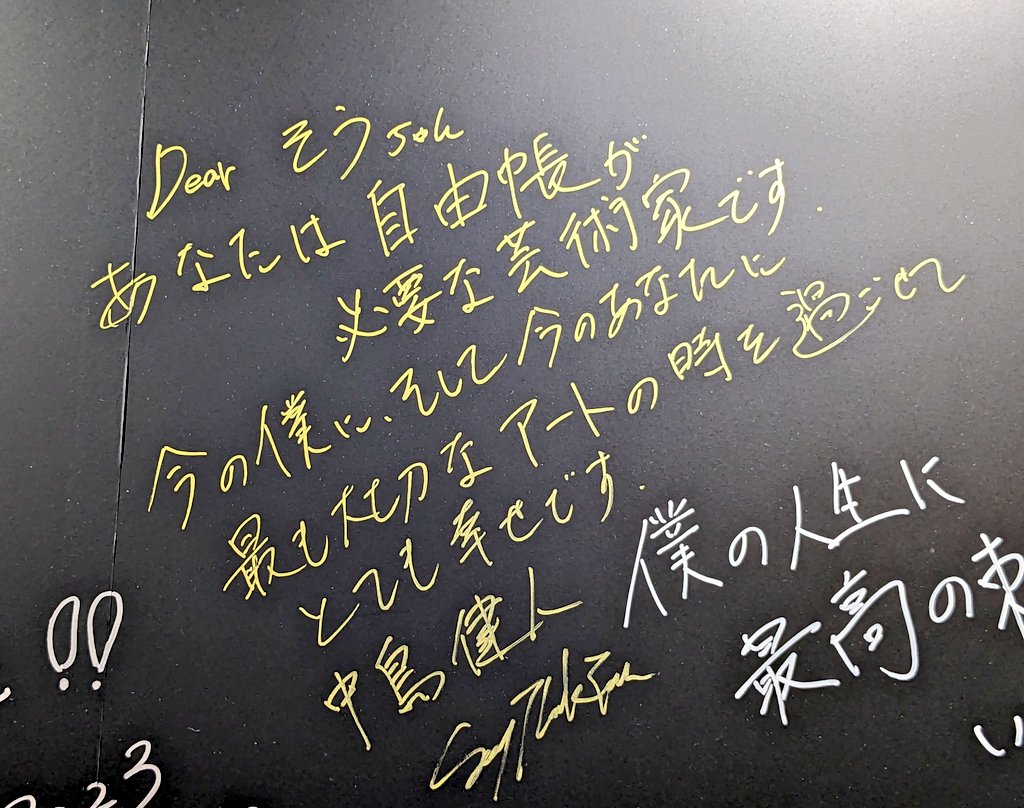 Dear そうちゃん
あなたは自由帳が
必要な芸術家です.
今の僕に、そして今のあなたに
最も大切なアートの時を過ごせて
とても幸せです.
中島健人
僕の人生に
最高の
い
!!
23